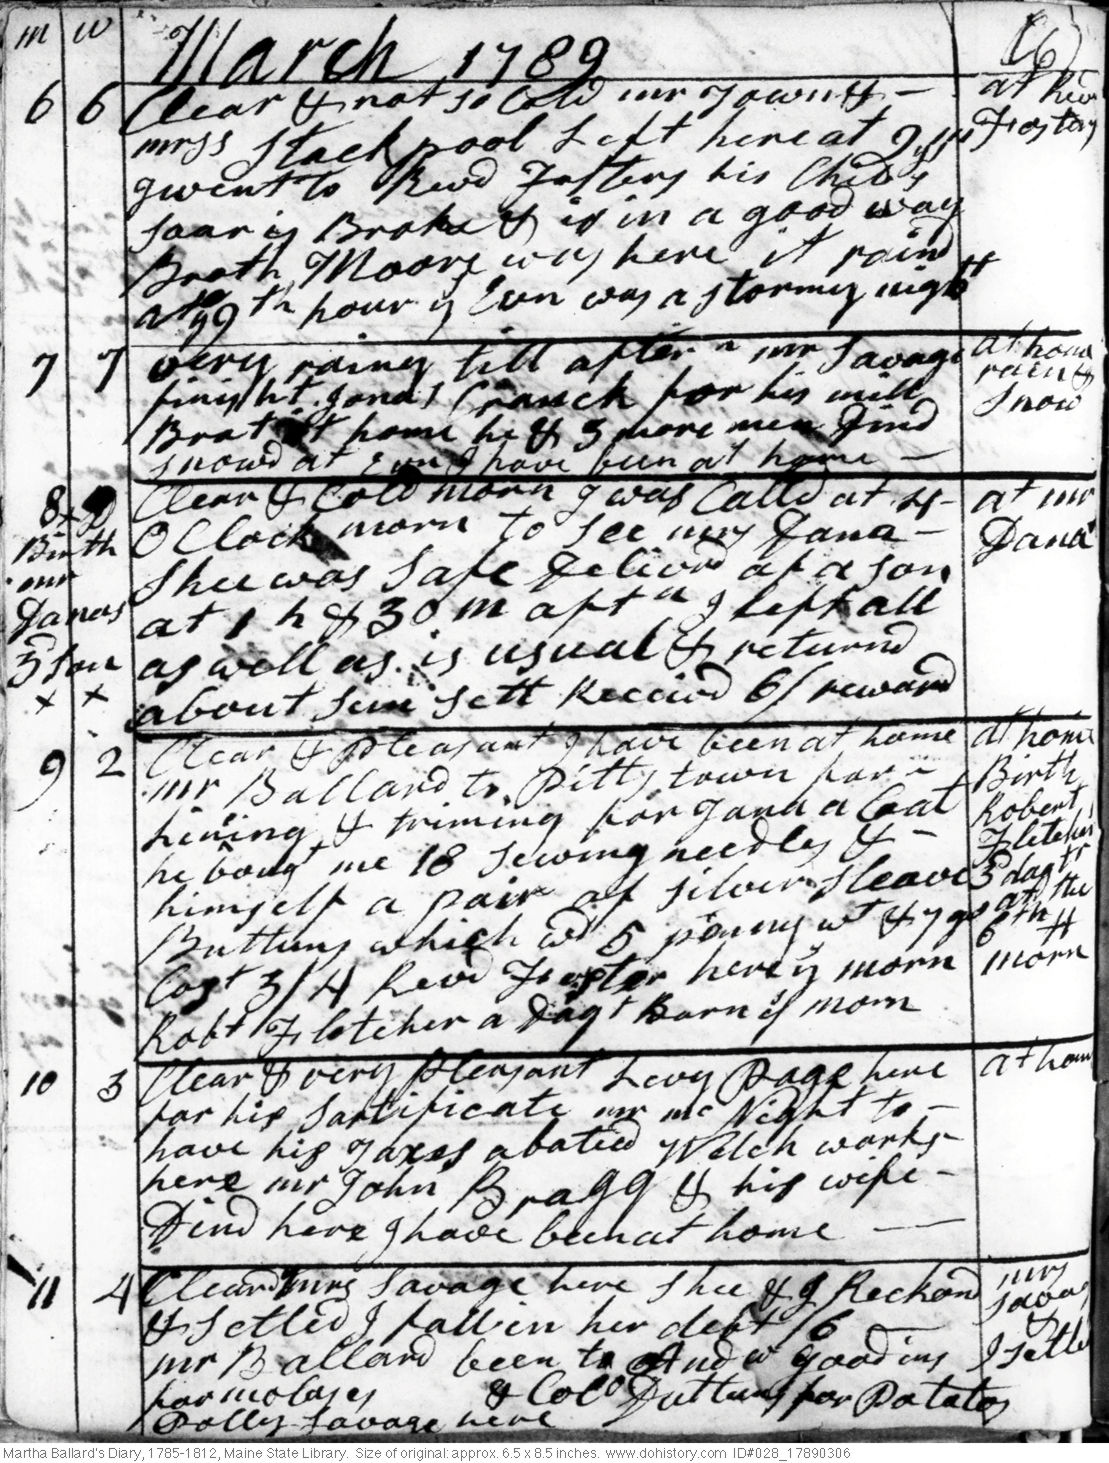 m w March 1789
6 6 Clear & not so Cold mr Town & — at Rev
mrss Stackpool Left here at 9 Fosters
I went to Revd Fosters his Childs
soar is Broke & is in a good way
Broth Moore was here it raind
at ye 9th hour of Evn was a stormy night
7 7 very rainy till aftern mr Savage at home
finisht Jonas Cranck for his mill rain &
Brot it home he & 3 more men Dind snow
snowd at Evn I have been at home —
8 D Clear & Cold morn I was Calld at 4 at mr
Birth O Clock morn to see mrs Dana Danas
mr Shee was safe Delivrd of a son
Danas at 1 h & 30 m aftn I left all
3d son as well as is usual & returnd
x x about sun sett Receivd 6/ reward
9 2 Clear & Pleasant I have been at home at home
mr Ballard to Pittstown for Birth
lining & triming for Jona a Coat Robert
he bougt me 18 sewing needles & Fletchers
himself a pair of silver sleave 3 dagtr
Buttuns which wd 5 penny wt & 7 grs at the
Cost 3/4 Revd Foster here ys morn 6th
Robt Fletcher a Dagt Born ys morn morn
10 3 Clear & very Pleasant Levy Page here at home
for his Sartificate mr mc Night to
have his Taxes abated Welch works
here mr John Bragg & his wife
Dind here I have been at home —
11 4 Cleard mrs Savage here Shee & I Reckond mrs
& setled I fall in her debt /6 Savag &
mr Ballard been to Andw Goodins I setled
for molases & Colo Duttuns for Potatos
Polly Savage here
Martha Ballard's Diary, 1785-1812, Maine State Library. Size of original: approx. 6.5 x 8.5 inches. www.dohistory.com ID#028_17890306